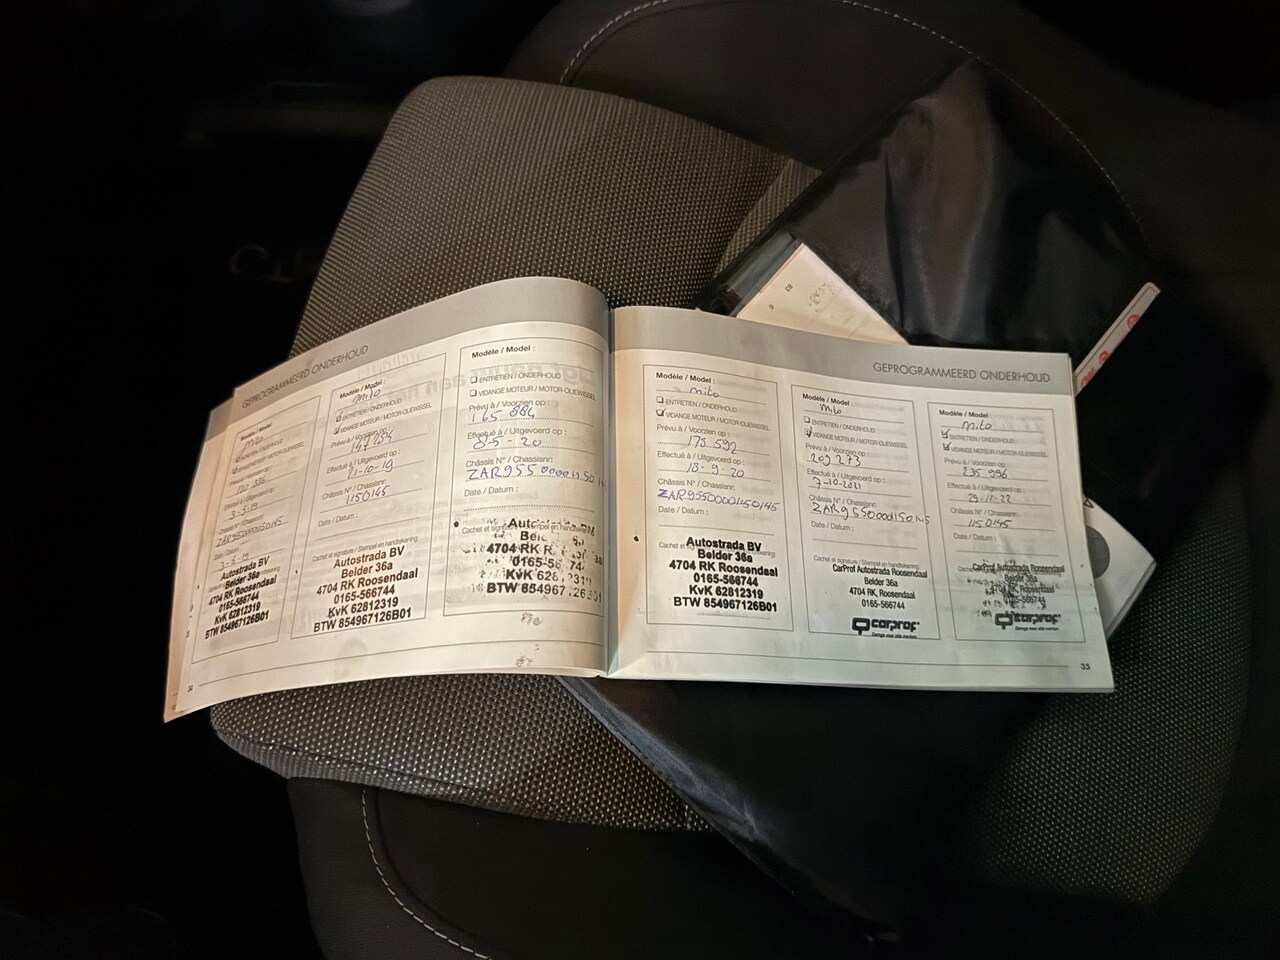 GEPROGRAMMEERD ONDERHOUD
Modèle / Model :
Mito
ENTRETIEN / ONDERHOUD
VIDANGE MOTEUR / MOTOR-OLIEWISSEL
Prévu à / Voorzien op :
Effectué à / Uitgevoerd op :
3-5-19
Châssis N° / Chassisnr:
ZAR95500001150145
Date / Datum :
3-5-19
Autostrada BV
Belder 36a
4704 RK Roosendaal
0165-566744
KvK 62812319
BTW 854967126B01
34
Modèle / Model :
Mito
ENTRETIEN / ONDERHOUD
VIDANGE MOTEUR / MOTOR-OLIEWISSEL
Prévu à / Voorzien op :
Effectué à / Uitgevoerd op :
21-10-19
Châssis N° / Chassisnr:
1150145
Date / Datum :
Cachet et signature / Stempel en handtekening
Autostrada BV
Belder 36a
4704 RK Roosendaal
0165-566744
KvK 62812319
BTW 854967126B01
Modèle / Model :
ENTRETIEN / ONDERHOUD
VIDANGE MOTEUR / MOTOR-OLIEWISSEL
Prévu à / Voorzien op :
165 884
Effectué à / Uitgevoerd op :
Châssis N° / Chassisnr:
ZAR95500001150145
Date / Datum :
Cachet et signature / Stempel en handtekening
Autostrada BV
4704 RK
KvK
BTW
GEPROGRAMMEERD ONDERHOUD
Modèle / Model :
mito
ENTRETIEN / ONDERHOUD
VIDANGE MOTEUR / MOTOR-OLIEWISSEL
Prévu à / Voorzien op :
173 592
Effectué à / Uitgevoerd op :
18-9-20
Châssis N° / Chassisnr:
ZAR95500001150145
Date / Datum :
Autostrada BV
Belder 36a
4704 RK Roosendaal
0165-566744
KvK 62812319
BTW 854967126B01
Modèle / Model :
Mito
ENTRETIEN / ONDERHOUD
VIDANGE MOTEUR / MOTOR-OLIEWISSEL
Prévu à / Voorzien op :
209 273
Effectué à / Uitgevoerd op :
7-10-2021
Châssis N° / Chassisnr:
ZAR95500001150145
Date / Datum :
Cachet et signature / Stempel en handtekening
CarProf Autostrada Roosendaal
Belder 36a
4704 RK, Roosendaal
0165-566744
carprof
Garage waar alle merken
Modèle / Model :
mito
ENTRETIEN / ONDERHOUD
VIDANGE MOTEUR / MOTOR-OLIEWISSEL
Prévu à / Voorzien op :
235 996
Effectué à / Uitgevoerd op :
29-11-22
Châssis N° / Chassisnr:
1150145
Date / Datum :
CarProf Autostrada Roosendaal
Belder 36a
4704 RK, Roosendaal
0165-566744
carprof
35